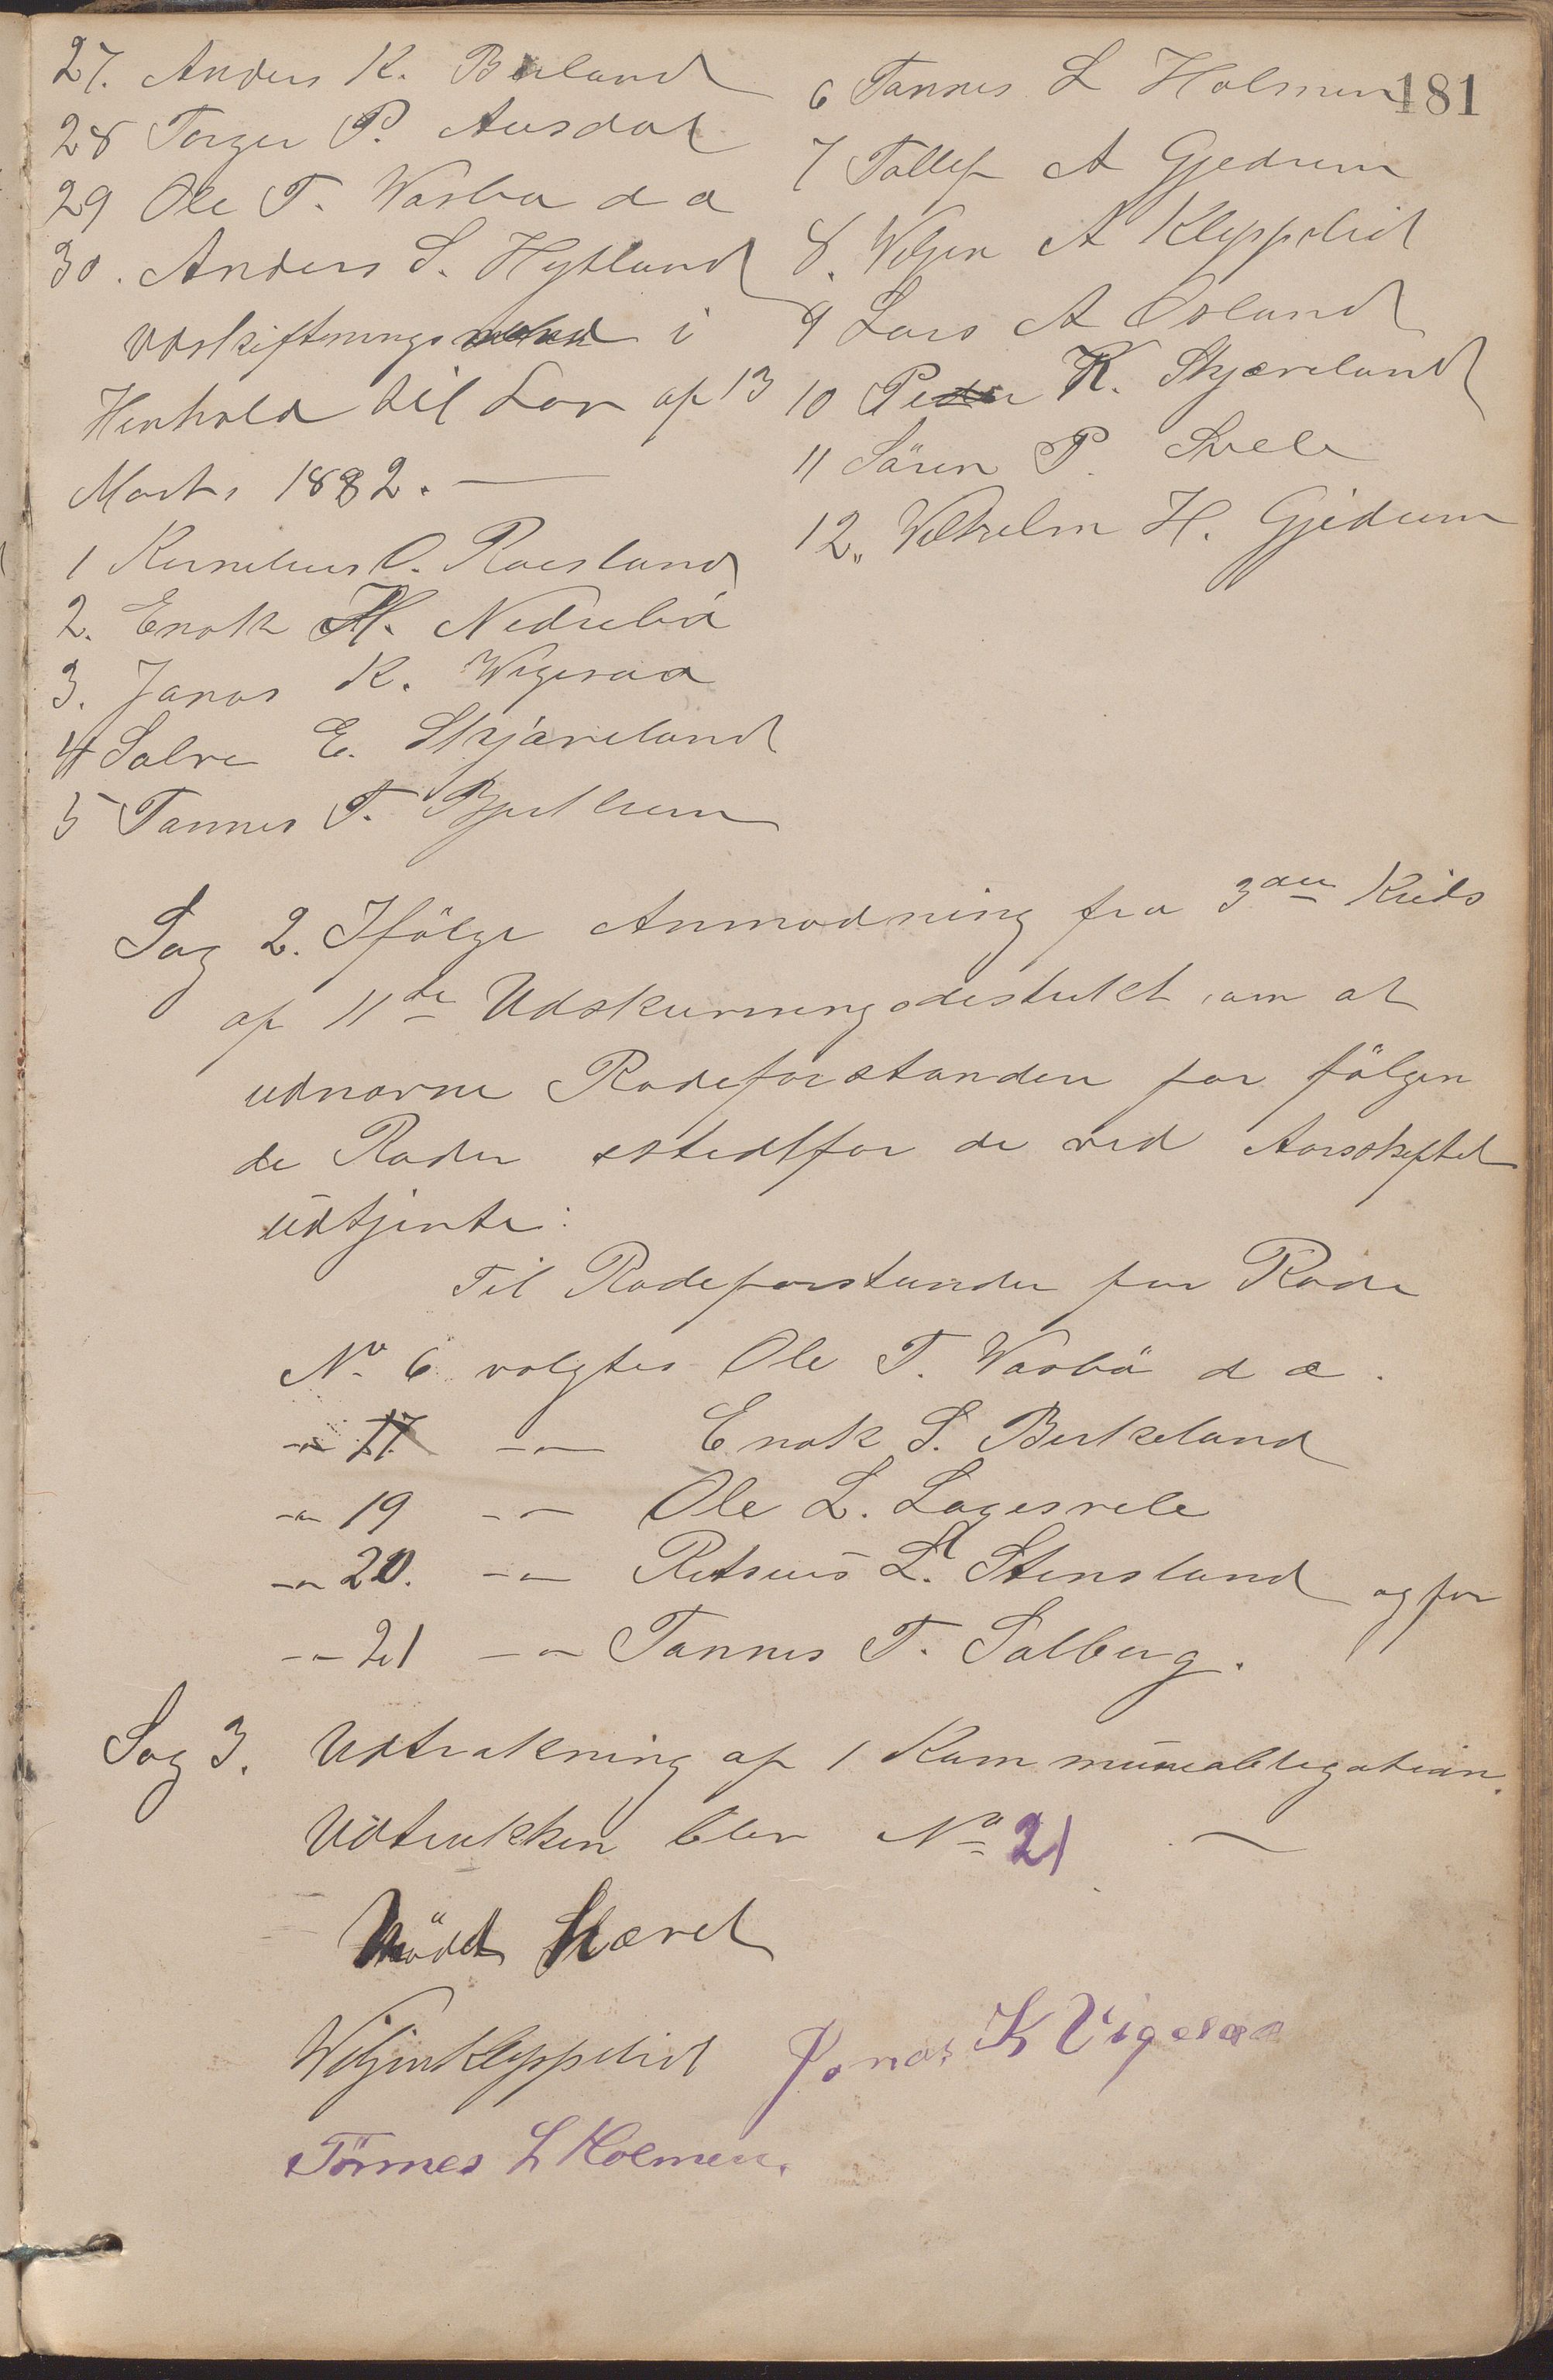 181
27. Anders K. Birland
28 Torger P. Ausdal
29 Ole T. Vasbø d æ
30. Anders S. Hytland
Udskiftningsmænd i
Henhold til Lov af 13
Marts 1882. —
1 Kornelius O. Roesland
2. Enok H. Nedrebö
3. Jonas K. Wigesaa
4 Salve E. Skjæveland
5 Tønnes T. Bjullum
6 Tønnes L Holmen
7 Tollef A Gjedrem
8. Wiljen A Kleppelid
9 Lars A Osland
10 Peder K. Skjæveland
11 Sören P. Svele
12. Vilhelm H. Gjedrem
Sag 2. Ifölge Anmodning fra 3die Kreds
af 11te Udskrivningsdistrikt om at
udnævne Rodeforstandere for fölgen
de Roder istedetfor de ved Aarsskiftet
udtjente:
Til Rodeforstander for Rode
No 6 valgtes Ole T. Vasbö d æ.
-"- 17 -"- Enok S. Birkeland
-"- 19 -"- Ole L. Logesvele
-"- 20. -"- L. Stensland og for
-"- 21 -"- Tønnes T. Salberg.
Sag 3. Udtrækning af 1 Kommuneobligation.
Udtrukken blev No 21 —
Mödet hævet
Wiljen Kleppelid Jonas K Vigesaa
Tönnes L Holmen.